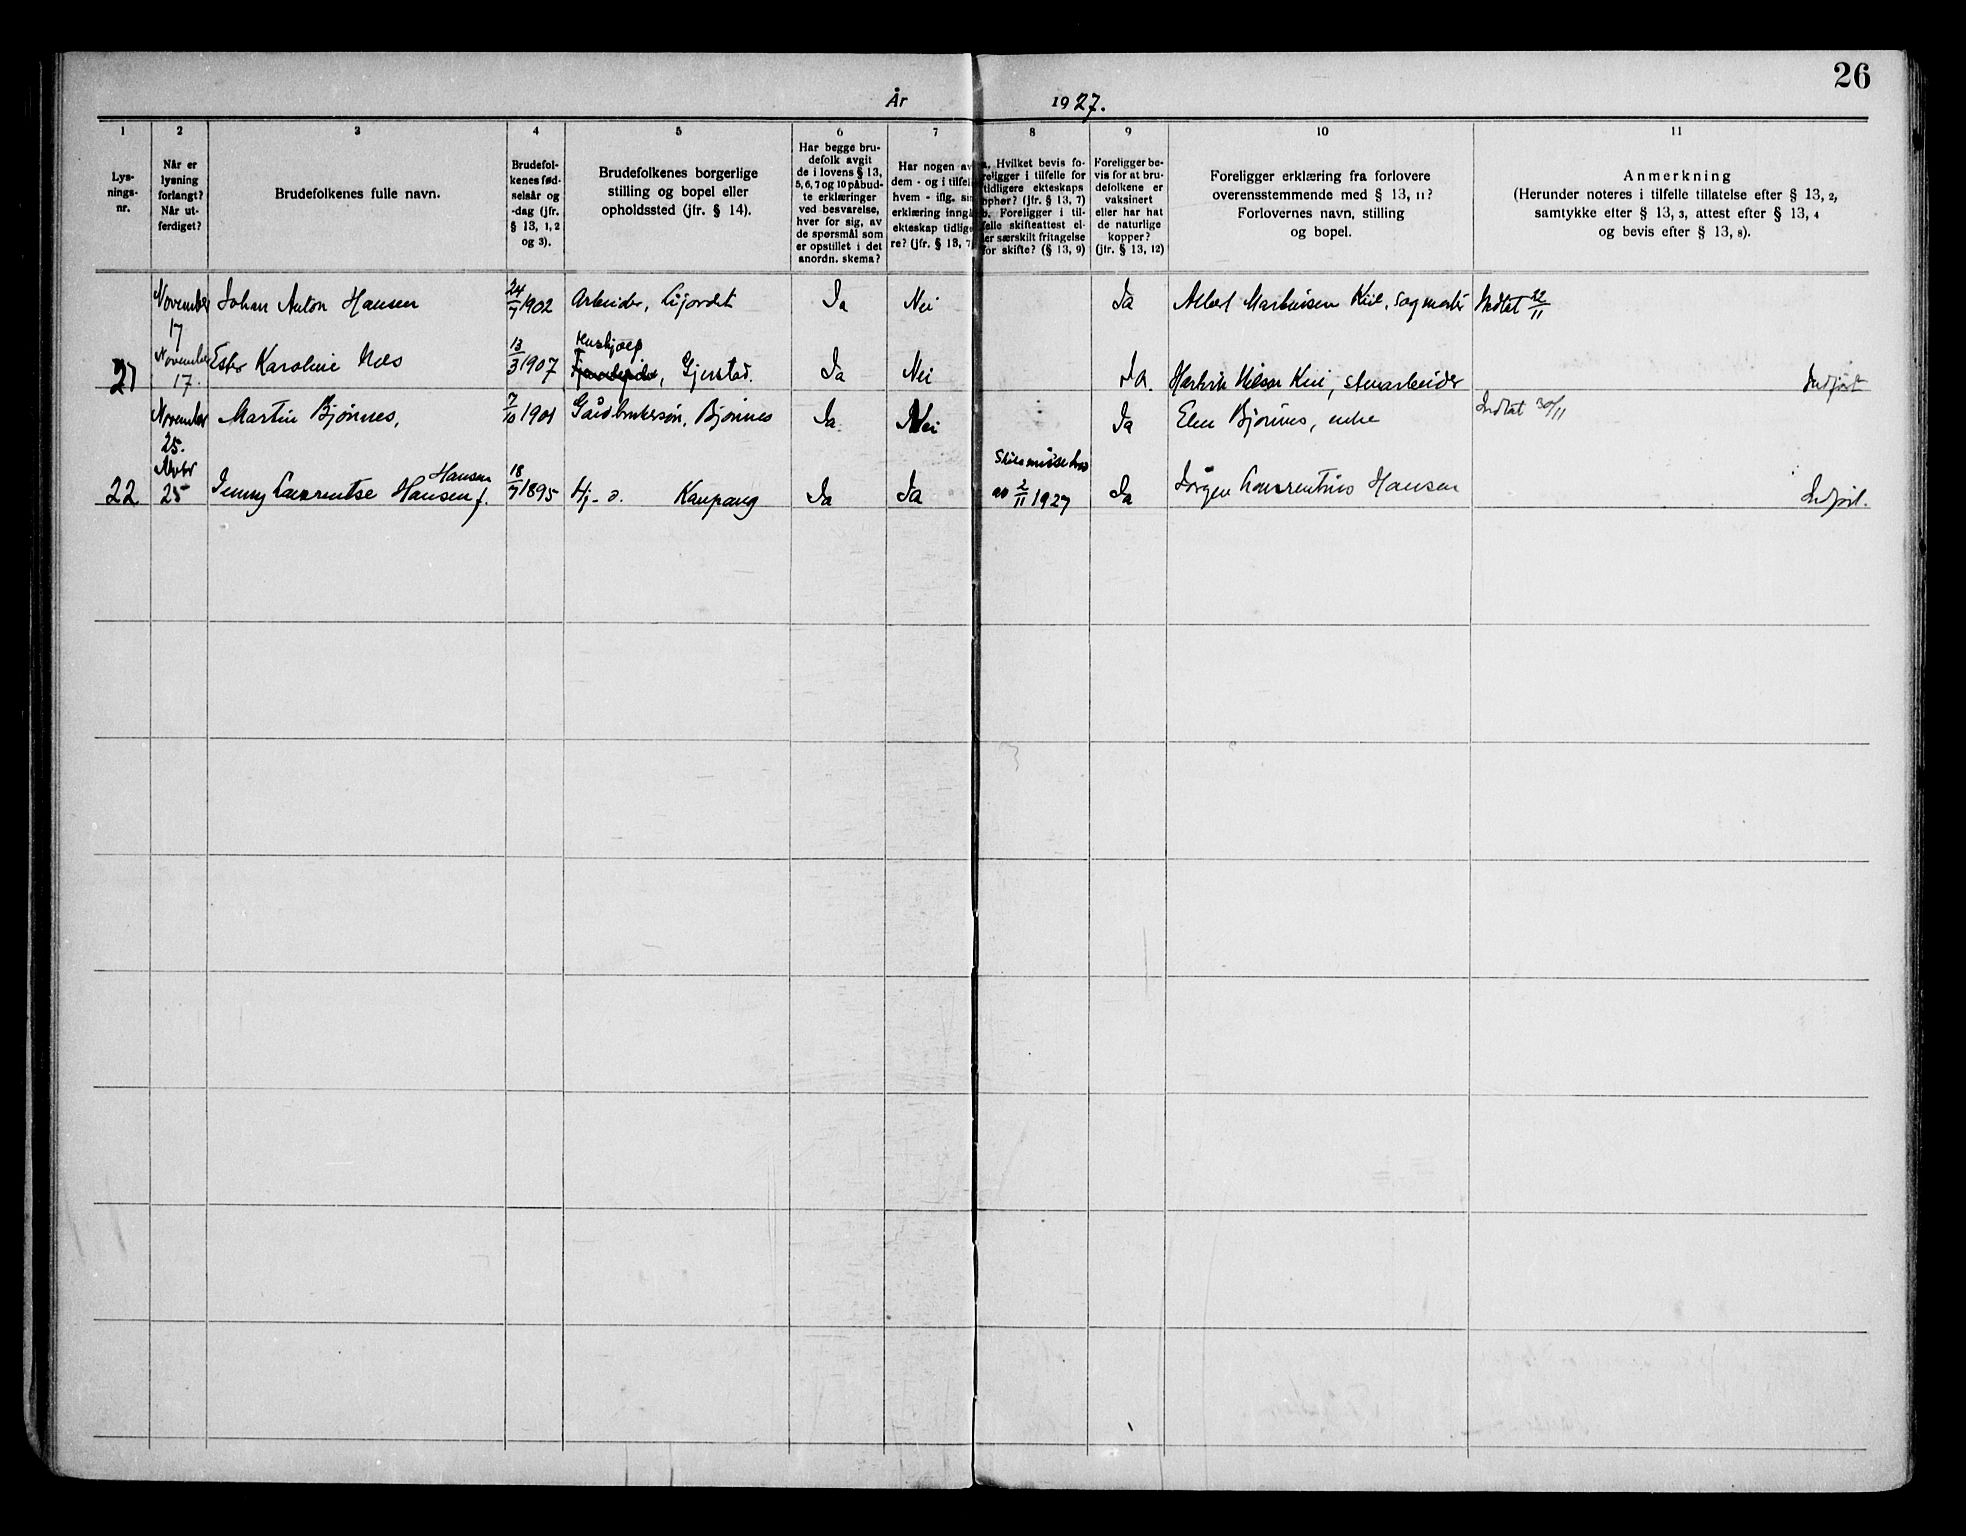 26
År 1927.
1 2 3 4 5 6 7 8 9 10 11
Lys-
nings-
nr.
Når er
lysning
forlangt?
Når ut-
ferdiget?
Brudefolkenes fulle navn.
Brudefol-
kenes fød-
selsår og
-dag (jfr.
§ 13, 1, 2
og 3).
Brudefolkenes borgerlige
stilling og bopel eller
opholdssted (jfr. § 14).
Har begge bru-
defolk avgit
de i lovens § 13,
5, 6, 7 og 10 påbud-
te erklæringer
ved besvarelse,
hver for sig, av
de spørsmål som
er opstillet i det
anordn. skema?
Har nogen av
dem - og i tilfel
hvem - iflg. sin
erklæring inngå
ekteskap tidlige
re? (jfr. § 13, 7
a. Hvilket bevis fo-
religger i tilfelle for
tidligere ekteskaps
ophør? (jfr. § 13, 7)
b. Foreligger i til-
felle skifteattest el-
ler særskilt fritagelse
for skifte? (§ 13, 9)
Foreligger be-
vis for at bru-
defolkene er
vaksinert
eller har hat
de naturlige
kopper?
(jfr. § 13, 12)
Foreligger erklæring fra forlovere
overensstemmende med § 13, 11?
Forlovernes navn, stilling
og bopel.
Anmerkning
(Herunder noteres i tilfelle tillatelse efter § 13, 2,
samtykke efter § 13, 3, attest efter § 13, 4
og bevis efter § 13, 8).
November
17
Johan Anton Hansen 24/7 1902 Arbeider, Ja Nei Ja Albert Martinsen Kise, 22/11
21 November
17. Ester Karoline Næs 13/3 1907 Hushjælp
Gjerstad. Ja Nei Ja. Nilsen stenarbeider Indført
November
25. Martin Bjønnes, 7/10 1901 Gårdbrukersøn, Bjønnes Ja Nei Ja Bjønnes, enke Indtat 30/11
22 Novbr
25 Jenny Laurentse Hansen f.
Hansen 18/7 1895 Kaupang Ja Ja
av 2/11 1927 Ja Jørgen Laurentius Hansen Indført.